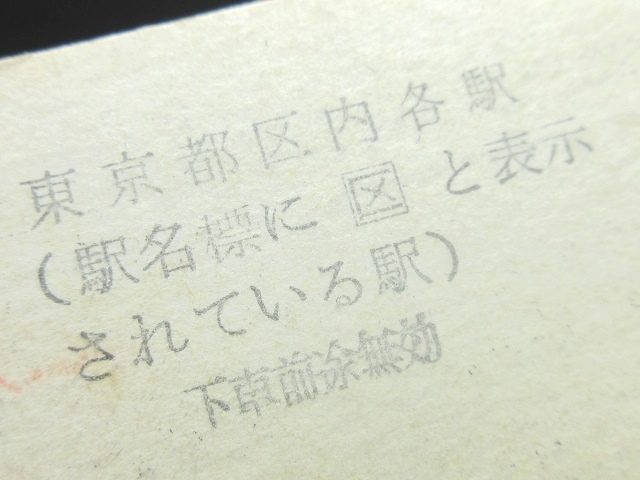 東京都区内各駅
(駅名標に 区 と表示
されている駅)
下車前途無効